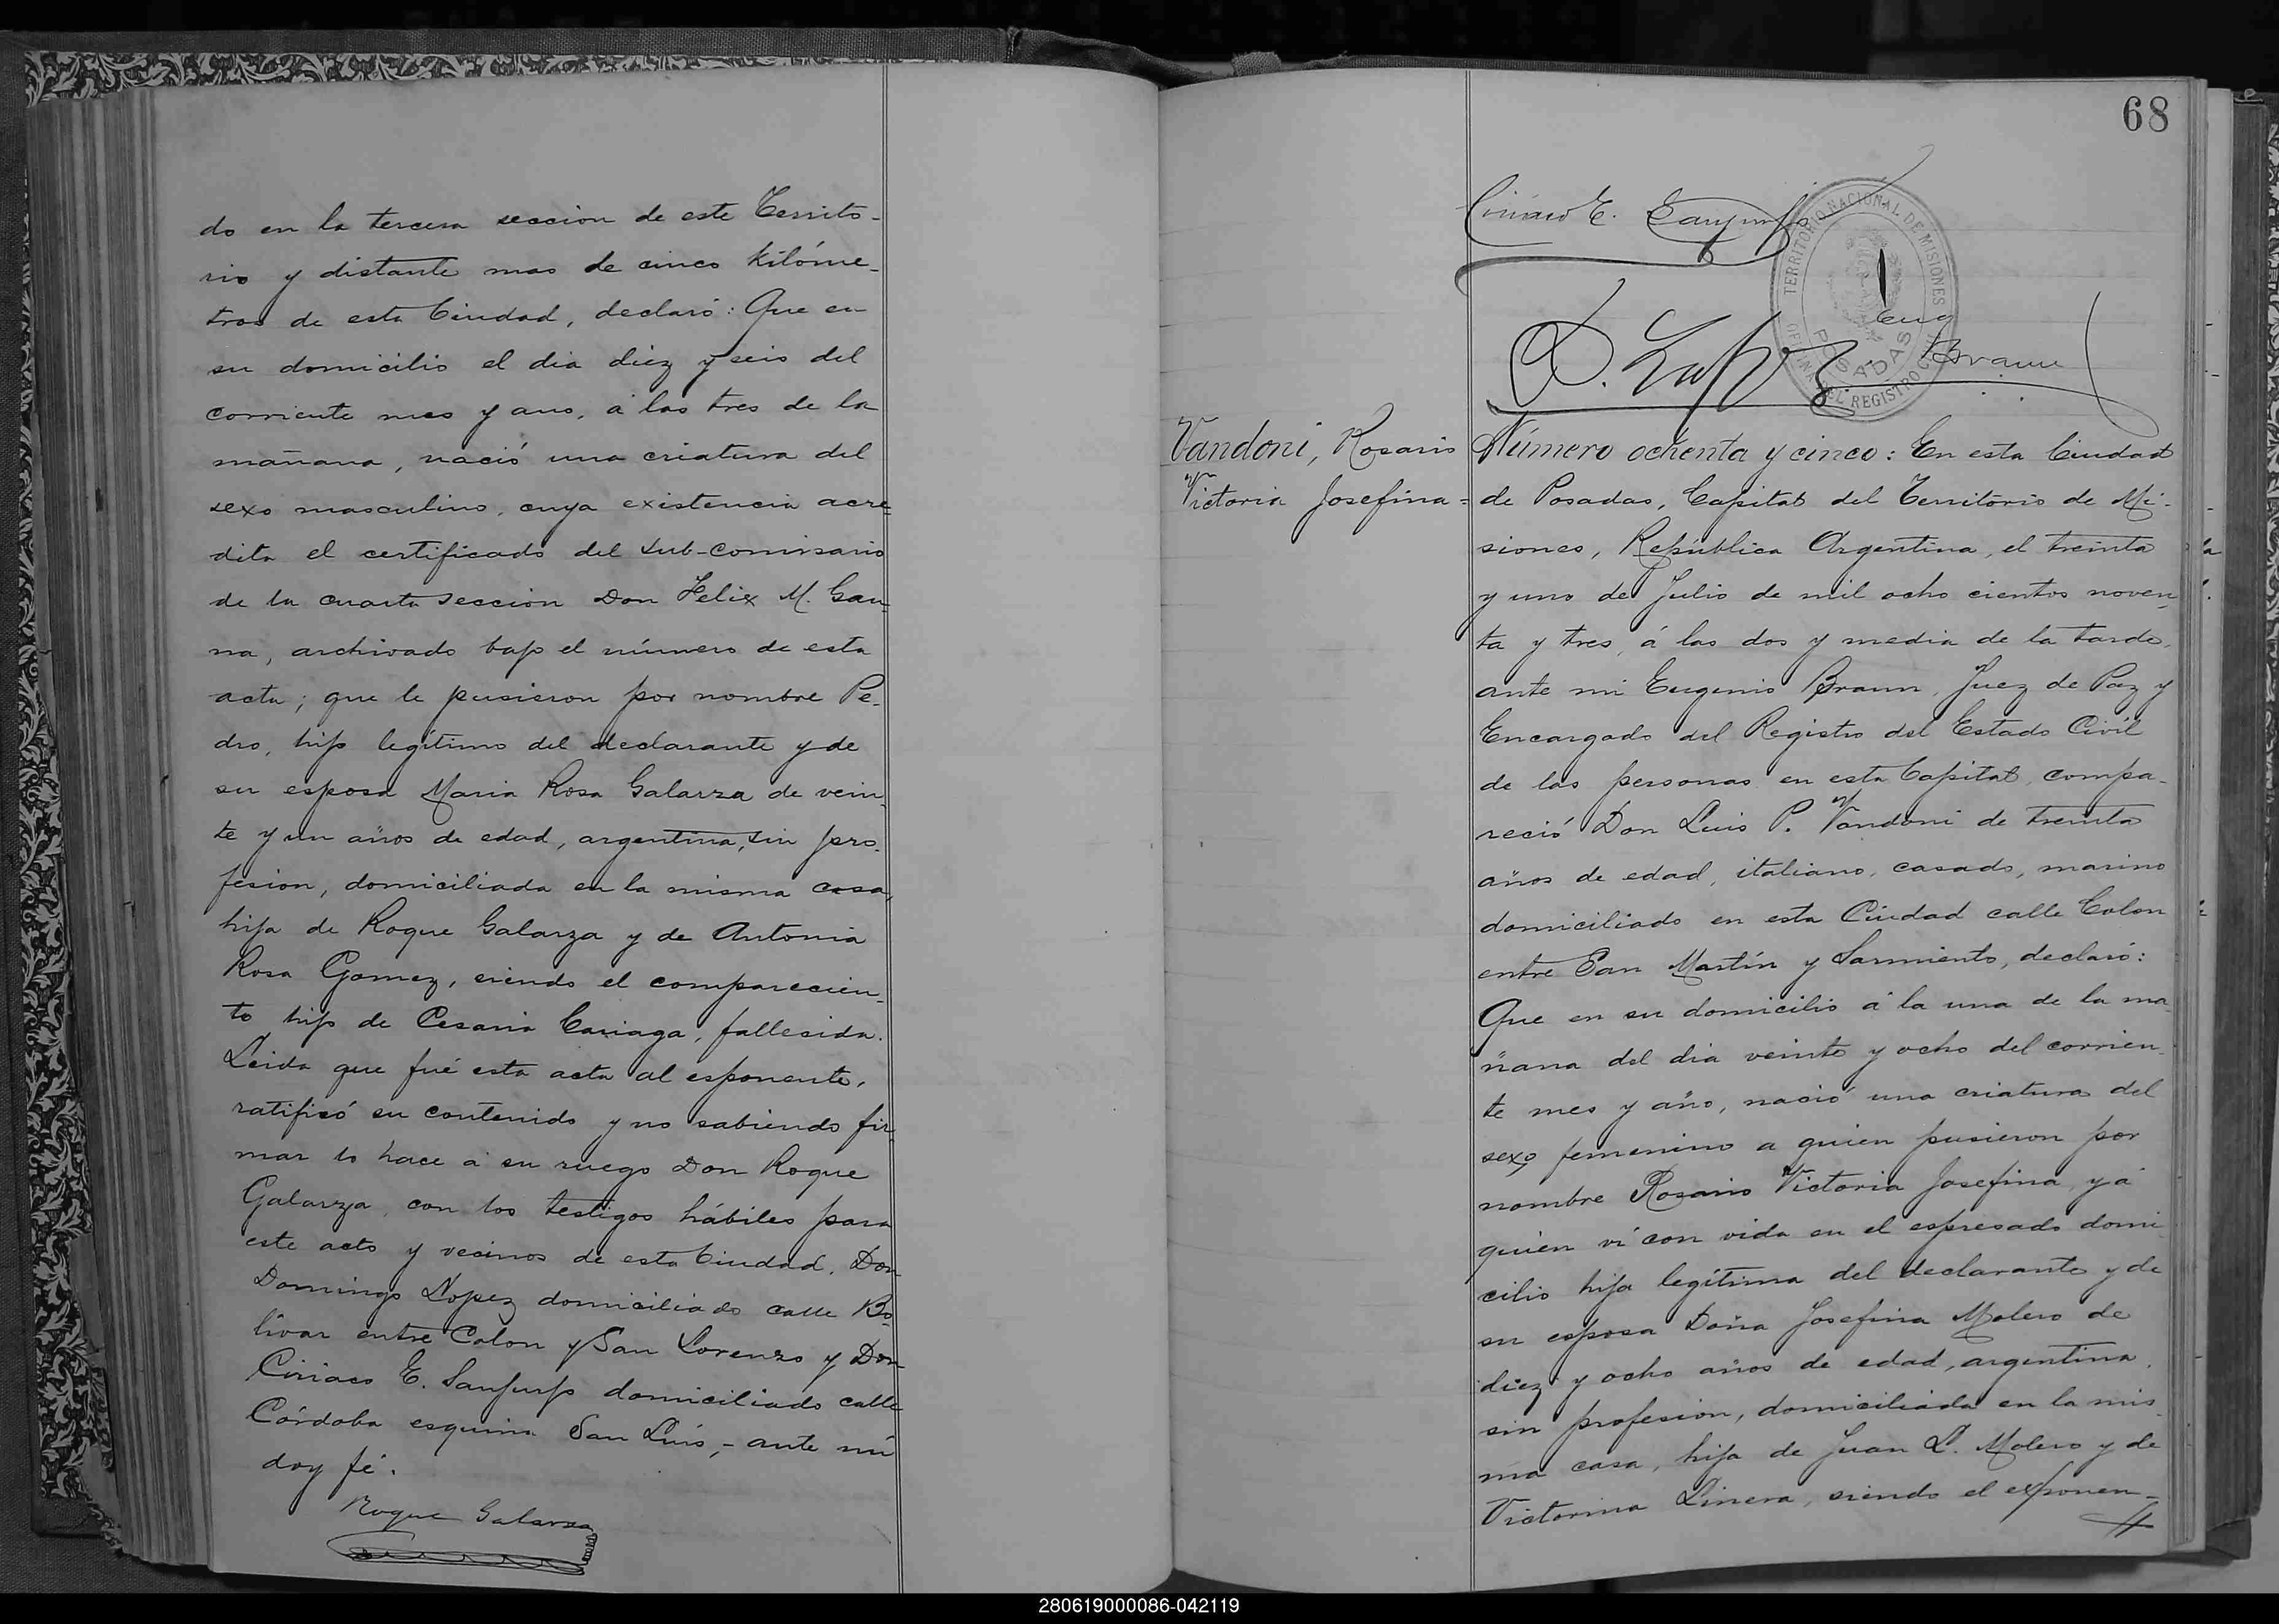 do en la tercera seccion de este Territo-
rio y distante mas de cinco kilóme-
tros de esta Ciudad, declaró: Que en
su domicilio el dia diez y seis del
corriente mes y ano, á las tres de la
mañana, nació una criatura del
sexo masculino, cuya existencia acre-
dita el certificado del Sub-Comisario
de la cuarta seccion Don Felix M. Gau-
na, archivado bajo el número de esta
acta; que le pusieron por nombre Pe-
dro, hijo legítimo del declarante y de
su esposa Maria Rosa Galarza de vein-
te y un años de edad, argentina, sin pro-
fesion, domiciliada en la misma casa,
hija de Roque Galarza y de Antonia
Rosa Gomez, siendo el comparecien-
te hijo de Cesaria Cariaga, fallesida.
Leida que fué esta acta al esponente,
ratificó su contenido y no sabiendo fir-
mar lo hace á su ruego Don Roque
Galarza, con los testigos hábiles para
este acto y vecinos de esta Ciudad, Don
Domingo Lopez domiciliado calle Bo-
livar entre Colon y San Lorenzo y Don
Ciriaco E. Sanjurjo domiciliado calle
Córdoba esquina San Luis, - ante mí
doy fé.
Roque Galarza
68
Ciriaco E. Sanjurjo
TERRITORIO NACIONAL DE MISIONES
OFICINA DEL REGISTRO CIVIL
POSADAS
D. Lopez
Eug Braun
Vandoni, Rosario
Victoria Josefina =
Número ochenta y cinco: En esta Ciudad
de Posadas, Capital del Territorio de Mi-
siones, República Argentina, el treinta
y uno de Julio de mil ocho cientos noven-
ta y tres, á las dos y media de la tarde,
ante mi Eugenio Braun, Juez de Paz y
Encargado del Registro del Estado Civil
de las personas en esta Capital, compa-
reció Don Luis P. Vandoni de treinta
años de edad, italiano, casado, marino
domiciliado en esta Ciudad calle Colon
entre San Martín y Sarmiento, declaró:
Que en su domicilio á la una de la ma-
ñana del dia veinte y ocho del corrien-
te mes y año, nació una criatura del
sexo femenino a quien pusieron por
nombre Rosario Victoria Josefina, y á
quien ví con vida en el espresado domi-
cilio hija legítima del declarante y de
su esposa Doña Josefina Molero de
diez y ocho años de edad, argentina,
sin profesion, domiciliada en la mis-
ma casa, hija de Juan L. Molero y de
Victorina Linera, siendo el exponen-
280619000086-042119